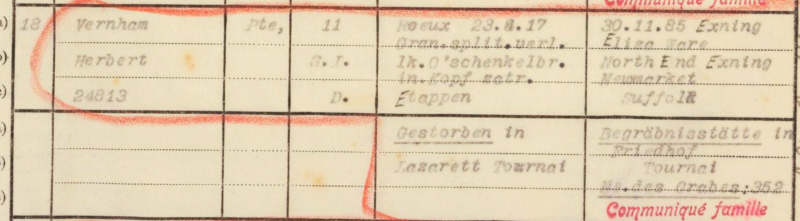 Communiqué famille
a) 18 Vernham Pte, 11 Roeux 23.4.17 30.11.85 Exning
Gran.split.verl. Eliza Ware
Herbert S.I. lk.O'schenkelbr. North End Exning
in.Kopf zetr. Newmarket
24813 D. Etappen Suffolk
Gestorben in Begräbnisstätte in
Friedhof
Lazarett Tournai Tournai
No.des Grabes:352
Communiqué famille